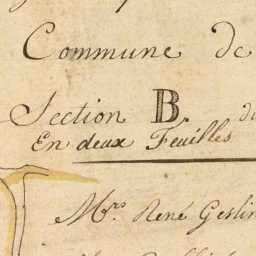 Commune de
Section B du
En deux Feuilles
Mrs René Geslin